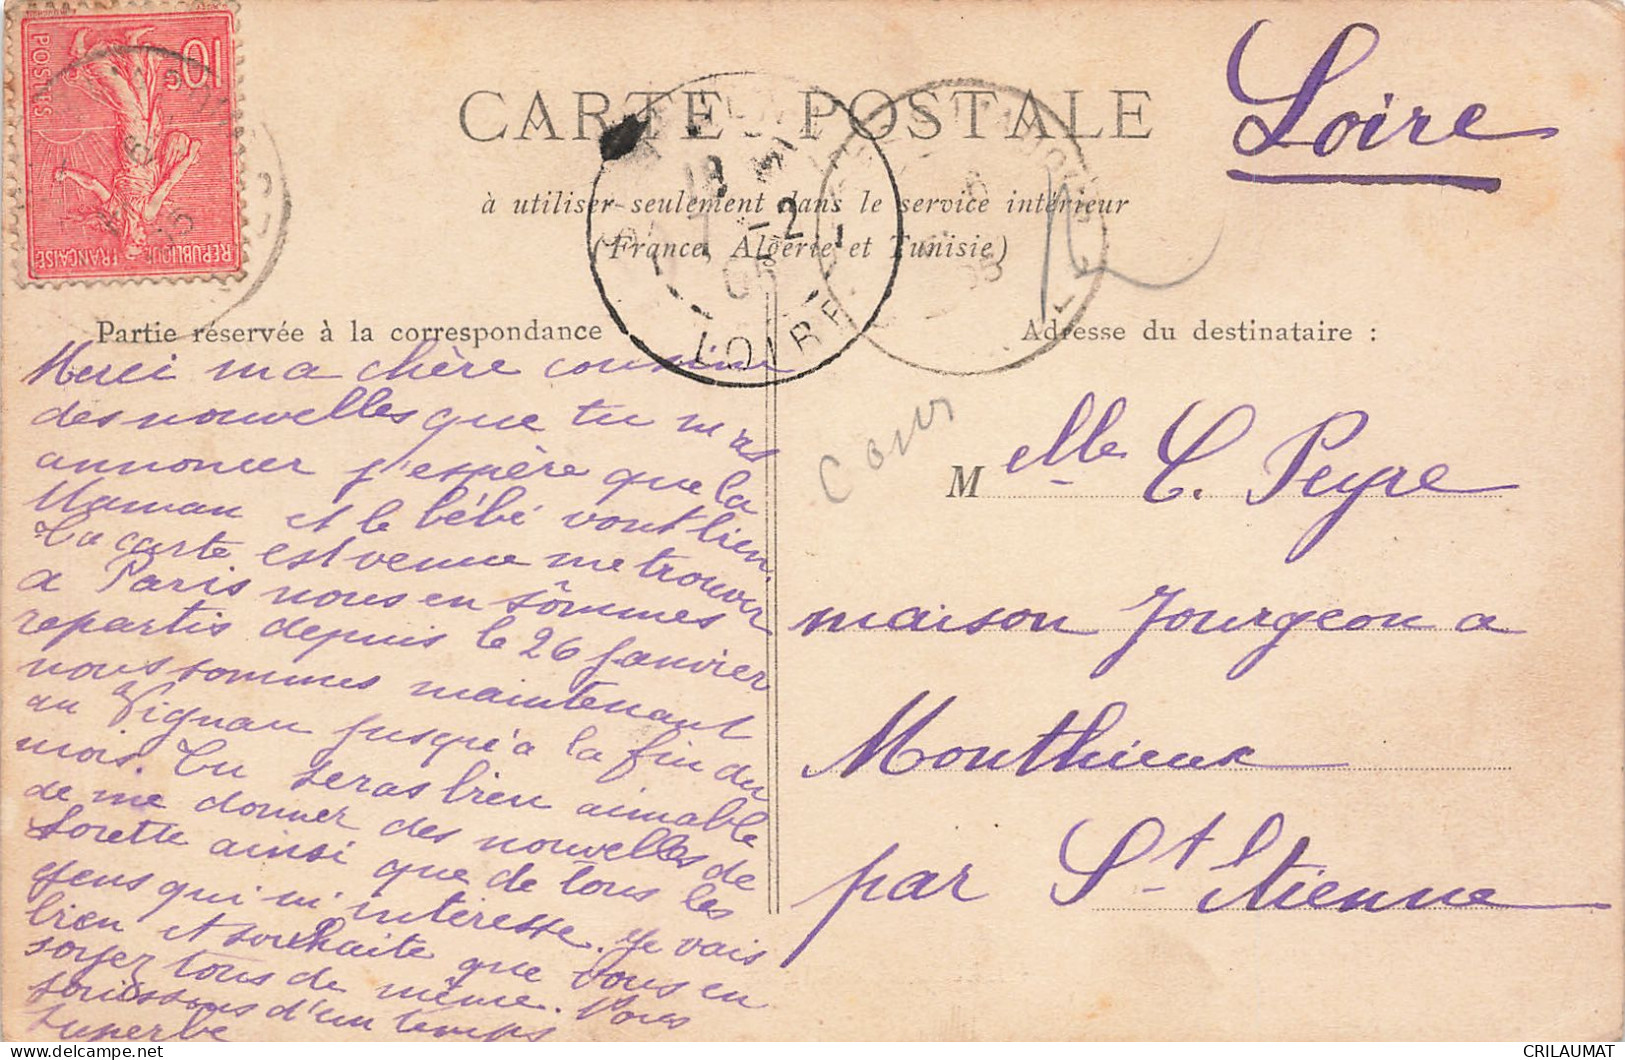 POSTES
10c
REPUBLIQUE FRANÇAISE
CARTE POSTALE
Loire
à utiliser seulement dans le service intérieur
(France, Algérie et Tunisie)
18
7 -2
05
LOIRE
05
Partie réservée à la correspondance
Adresse du destinataire :
Merci ma chère cousine
des nouvelles que tu m'as
annoncer j'espère que la
Maman et le bébé vont bien.
La carte est venue me trouver
a Paris nous en sômmes
repartis depuis le 26 Janvier
nous sommes maintenant
au Vignau jusqu'a la fin du
mois. Tu seras bien aimable
de me donner des nouvelles de
Lorette ainsi que de tous les
gens qui m'intéresse. Je vais
bien et souhaite que vous en
soyez tous de même. Nous
jouissons d'un temps
superbe
Cours
Melle C. Peyre
maison Jourgeon a
Monthieux
par St Etienne
CRILAUMAT